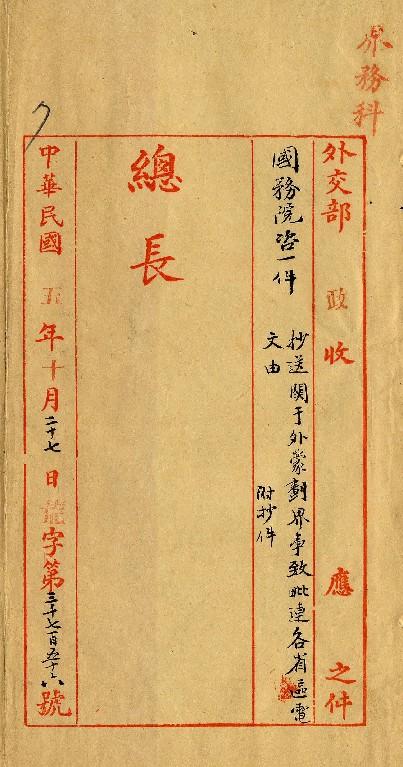 界務科
外交部 政 收 應 之件
國務院咨一件
抄送關于外蒙劃界事致毗連各省區電
文由
附抄件
總長
中華民國五年十月二十七日 字第三千七百五十六號